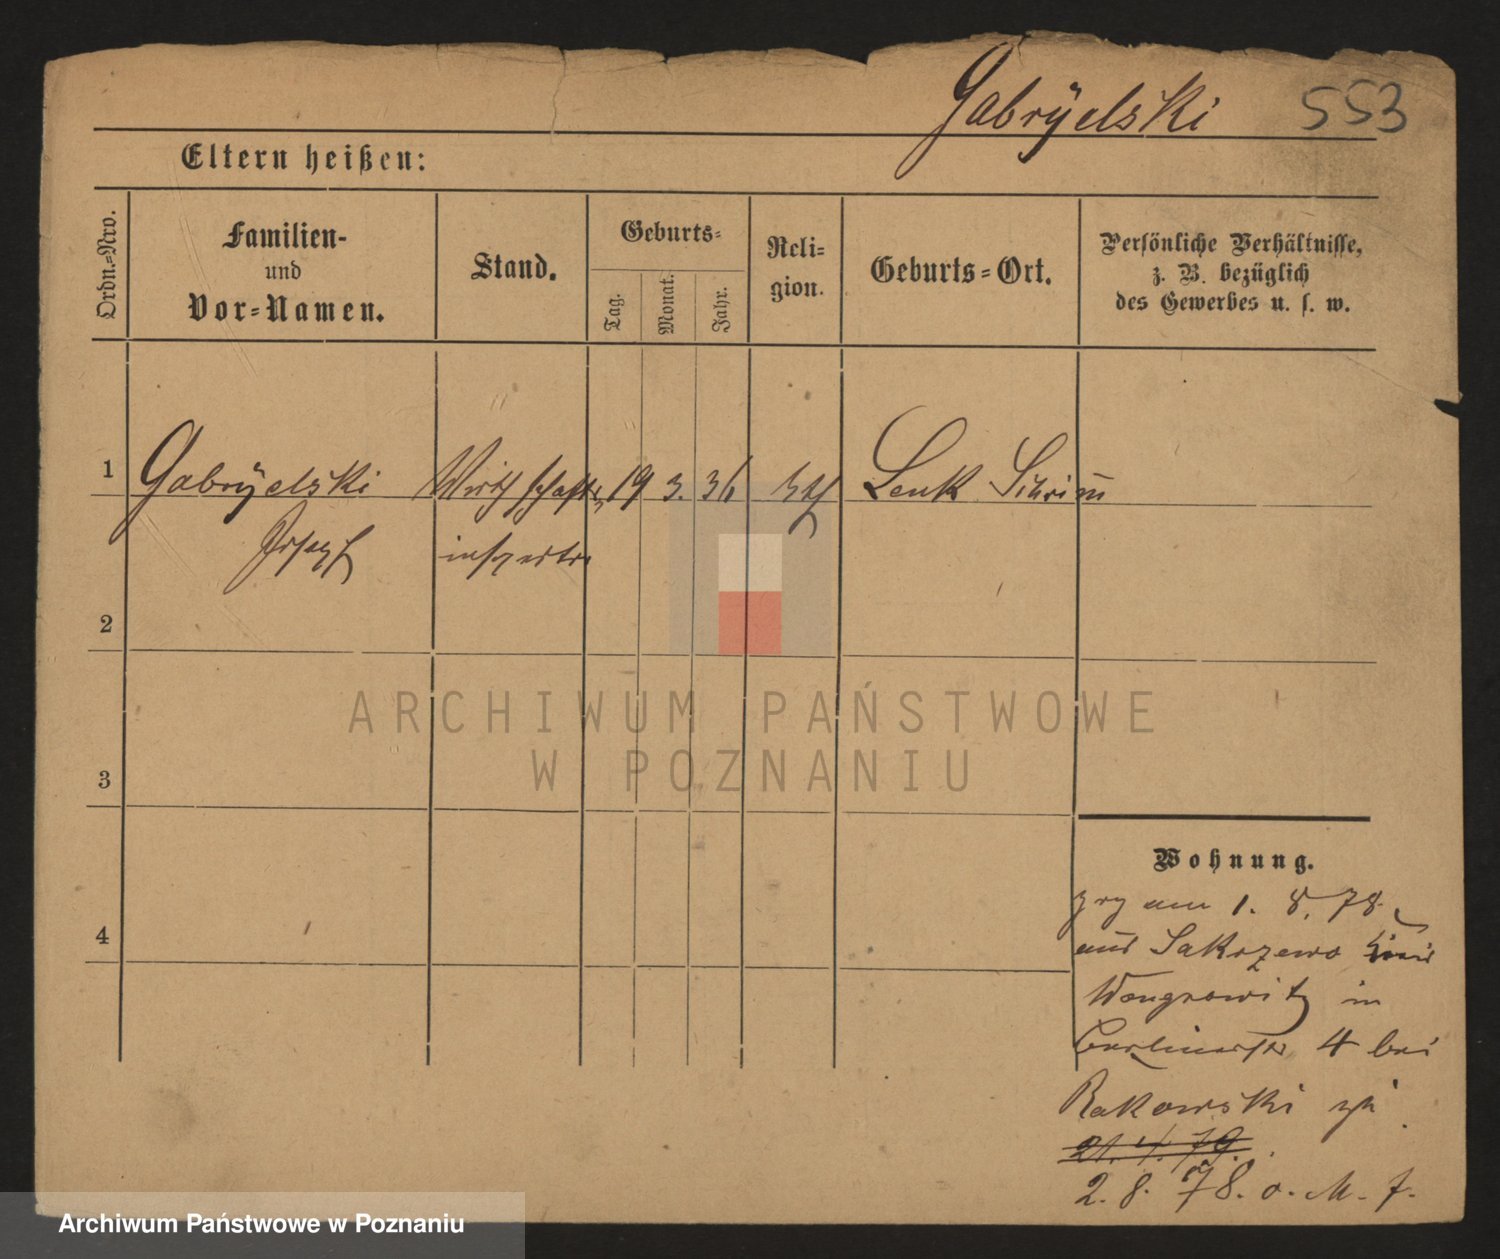 Gabrÿelski 553
Eltern heißen:
Ordn.-Nro.
Familien-
und
Vor-Namen.
Stand.
Geburts-
Tag.
Monat.
Jahr.
Reli-
gion.
Geburts-Ort.
Persönliche Verhältnisse,
z. B. bezüglich
des Gewerbes u. s. w.
1 Gabrÿelski Wirthschafts 19 3. 36 kth Lenk Schrim̄
Joseph inspector
2
3
4
ARCHIWUM PAŃSTWOWE
W POZNANIU
Wohnung.
zog am 1. 8. 78.
aus Sakrzewo Kreis
Wongrowitz in
Berlinerstr 4 bei
Rakowski
21. 4. 79.
2. 8. 78. o. M. f.
Archiwum Państwowe w Poznaniu